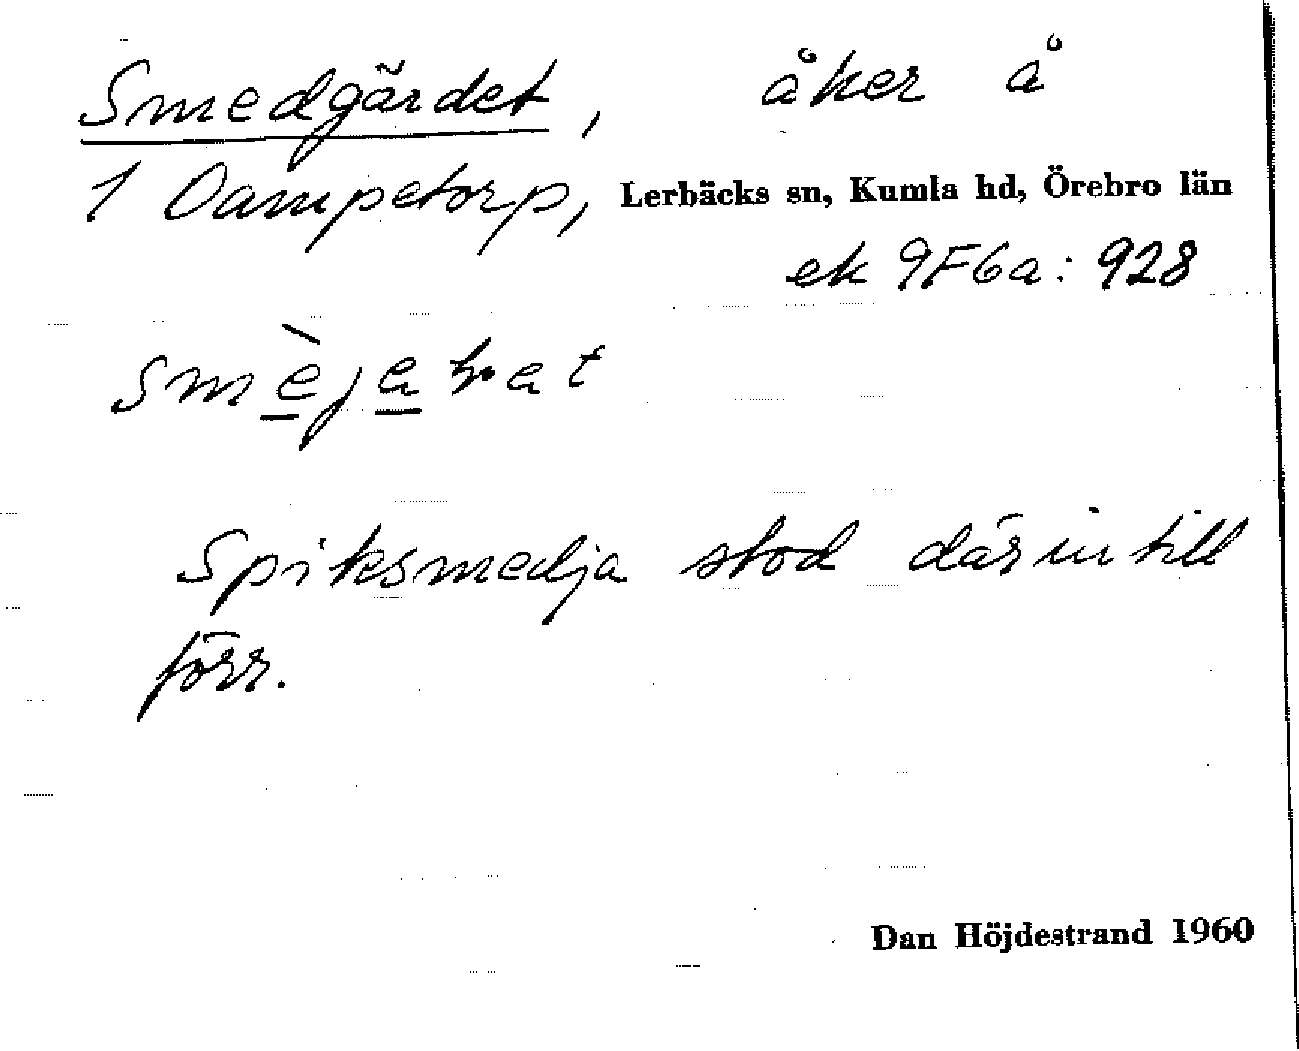 Smedgärdet, åker å
1 Dampetorp, Lerbäcks sn, Kumla hd, Örebro län
ek 9F6a: 928
Spiksmedja stod därintill
förr.
Dan Höjdestrand 1960